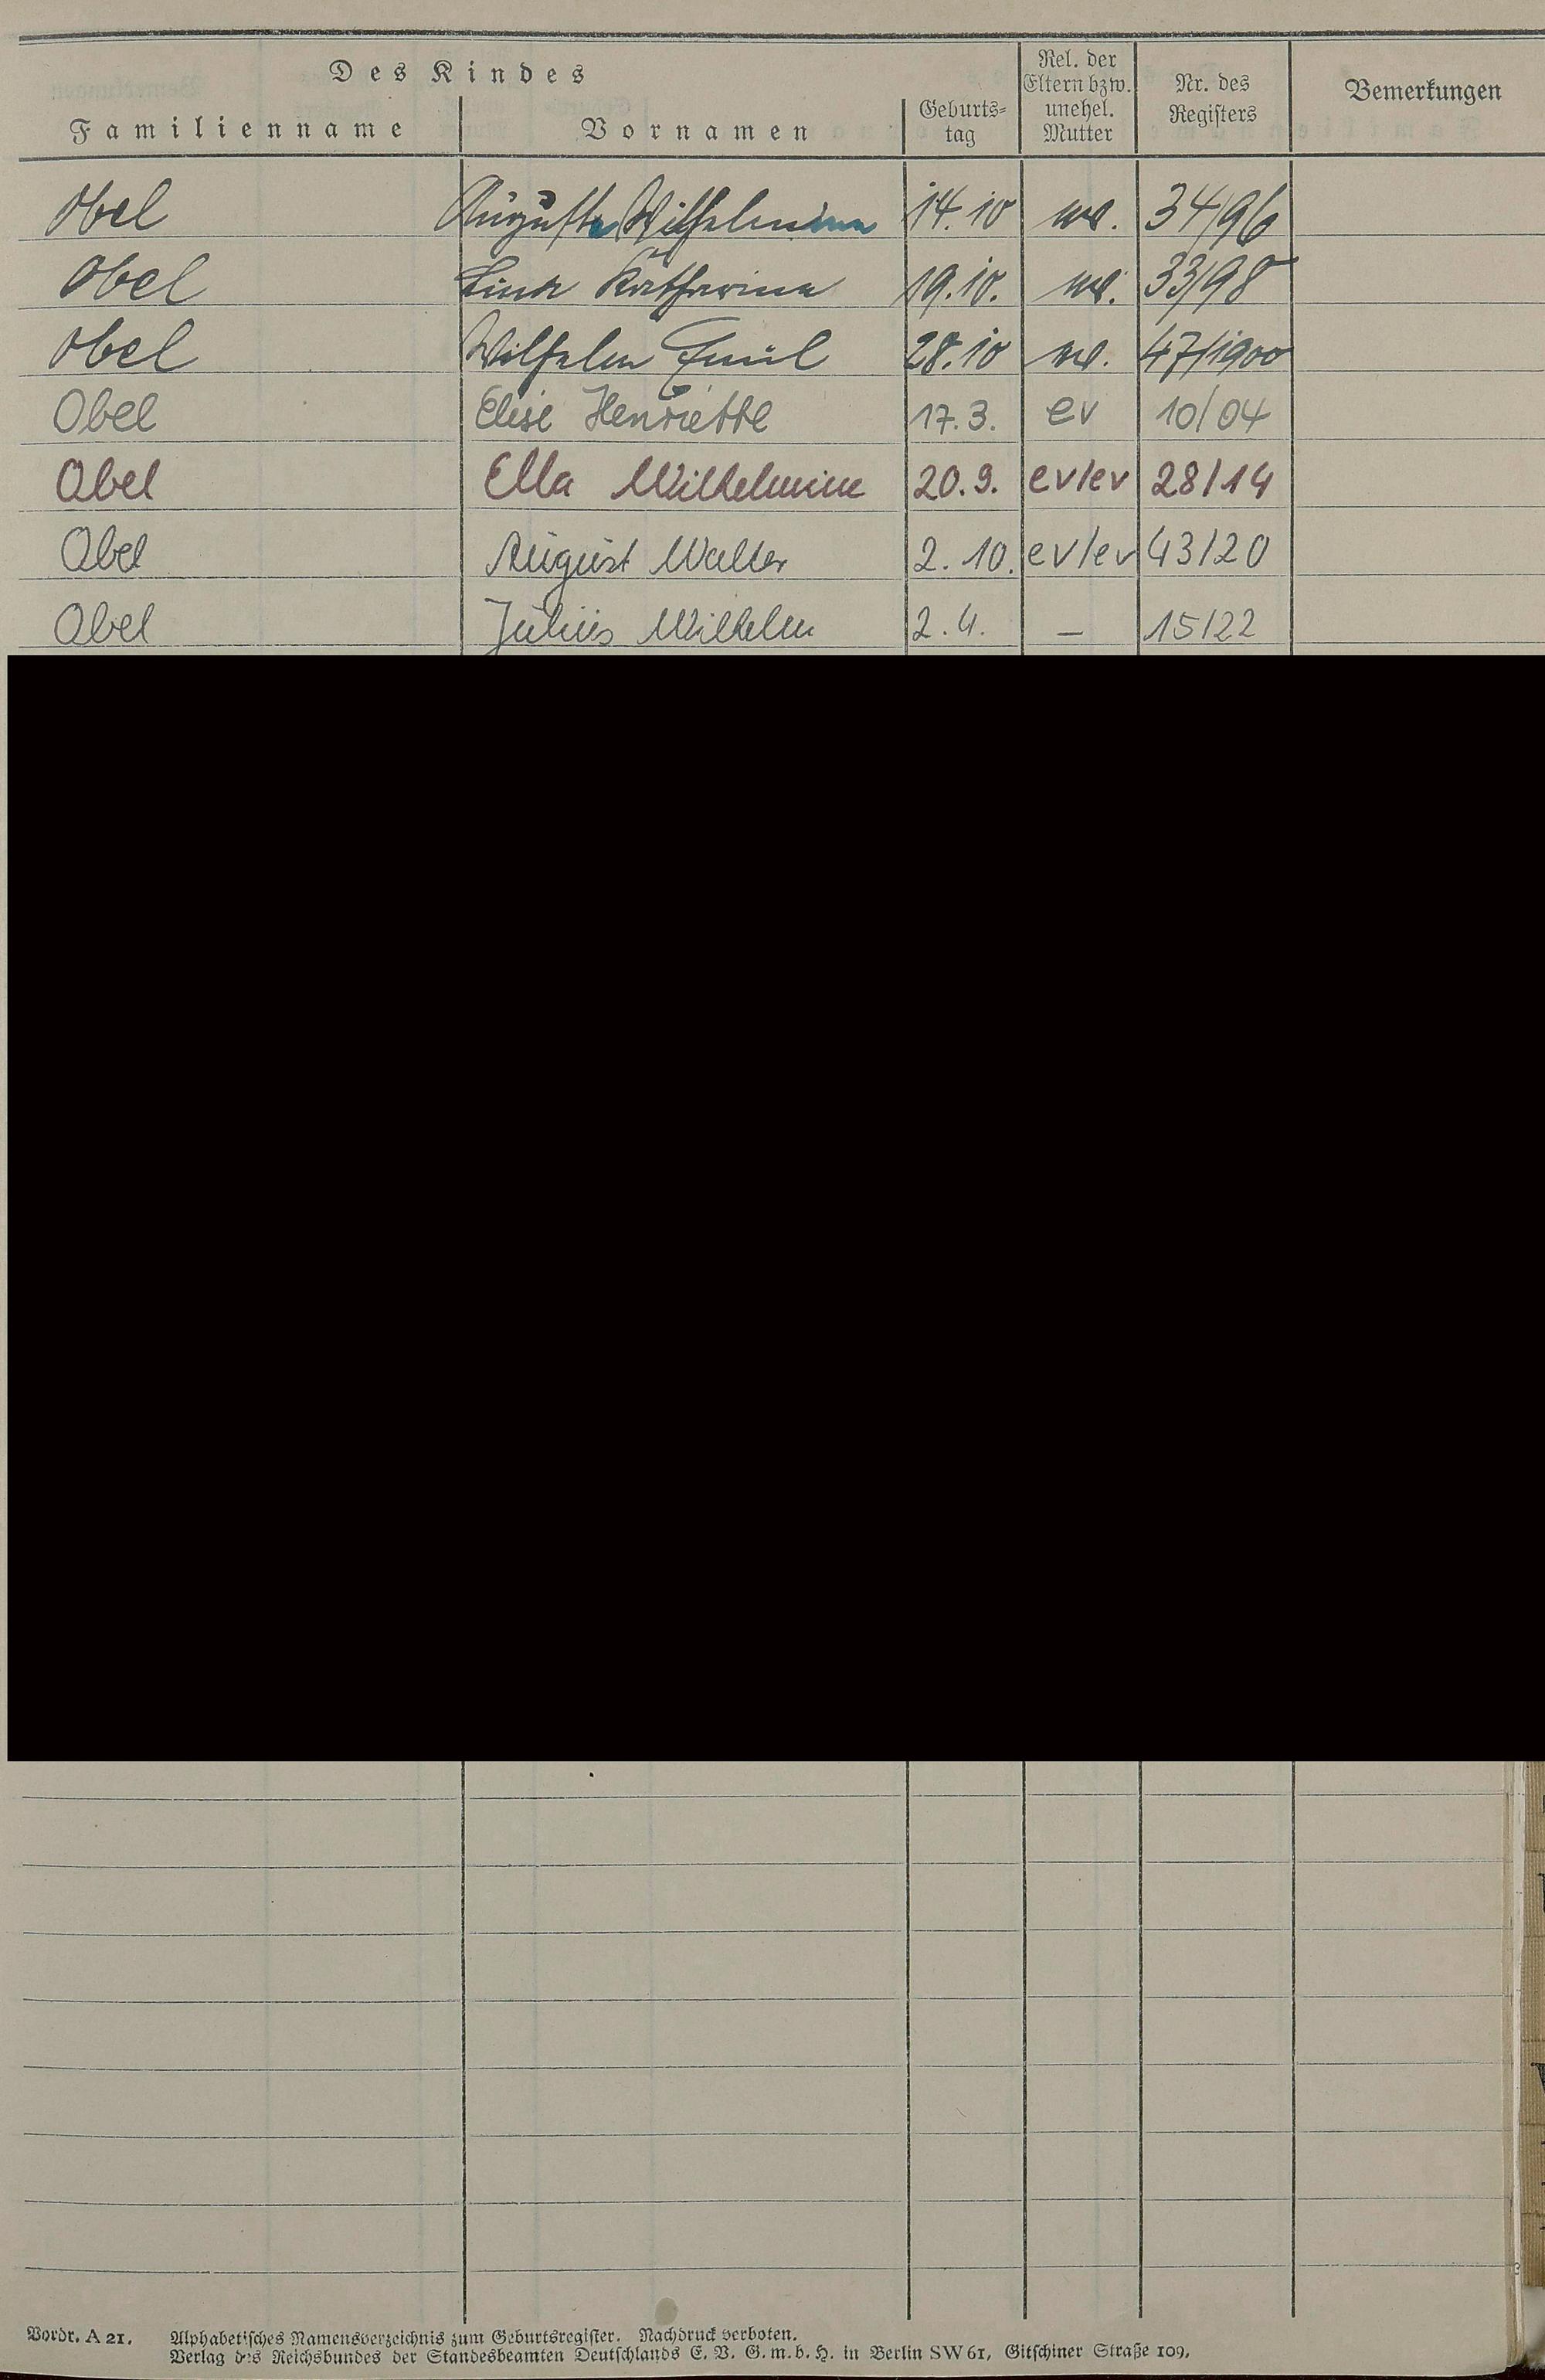 Des Kindes
Familienname Vornamen Geburts=tag Rel. der Eltern bzw. unehel. Mutter Nr. des Registers Bemerkungen
Obel Auguste Wilhelmine 14.10 ev. 34/96
Obel Lina Katharina 19.10. ev. 33/98
Obel Wilhelm Emil 28.10 ev. 47/1900
Obel Elise Henriette 17.3. ev 10/04
Obel Ella Wilhelmine 20.9. ev/ev 28/14
Obel August Walter 2.10. ev/ev 43/20
Obel Julius Wilhelm 2.4. — 15/22
Vordr. A 21. Alphabetisches Namensverzeichnis zum Geburtsregister. Nachdruck verboten.
Verlag des Reichsbundes der Standesbeamten Deutschlands E. V. G. m. b. H. in Berlin SW 61, Gitschiner Straße 109.